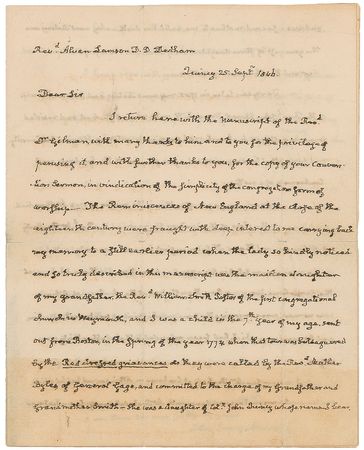 Rev.d Alvan Lamson D.D. Dedham
Quincy 25 Sept.r 1846.
Dear Sir
I return herewith the manuscript of the Rev.d
Dr. Gilman, with many thanks to him and to you for the privilege of
perusing it and with further thanks to you, for the copy of your Conven-
tion Sermon, in vindication of the simplicity of the congregation form of
worship — The Reminiscences of New England at the close of the
eighteenth century were fraught with deep interest to me carrying back
my memory to a still earlier period when the lady so kindly noticed
and so truly described in the manuscript was the maiden daughter
of my grandfather the Rev.d William Smith Pastor of the first congregational
church in Weymouth, and I was a child in the 7th year of my age, sent
out from Boston, in the Spring of the year 1774 when that town was beleaguered
by the Red dressed grievances as they were called by the Rev.d Mather
Byles of General Gage, and committed to the charge of my Grandfather and
Grandmother Smith — She was a daughter of Col.l John Quincy whose name I bear